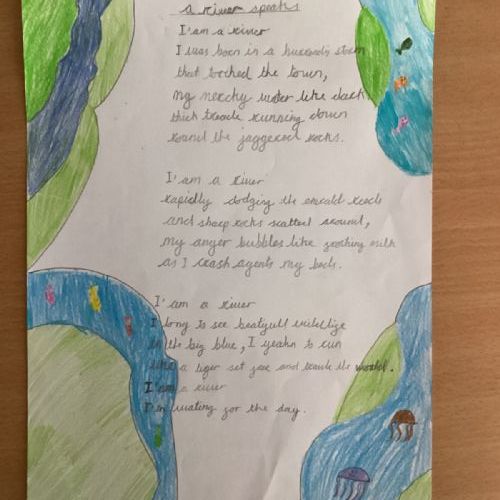 a river speaks
I'am a river
I was born in a
that torched the town,
my merchy water like dark
thick treacle running down
round the jaggered rocks.
I'am a river
rapidly dodging the emerald reeds
and sharp rocks scatterd around,
my anger bubbles like frothing milk
as I crash agents my beds.
I'am a river
I long to see beatyfull wildlige
in the big blue, I yearn to run
like a tiger set free and travle the world.
I'am a river
I'm waiting for the day.